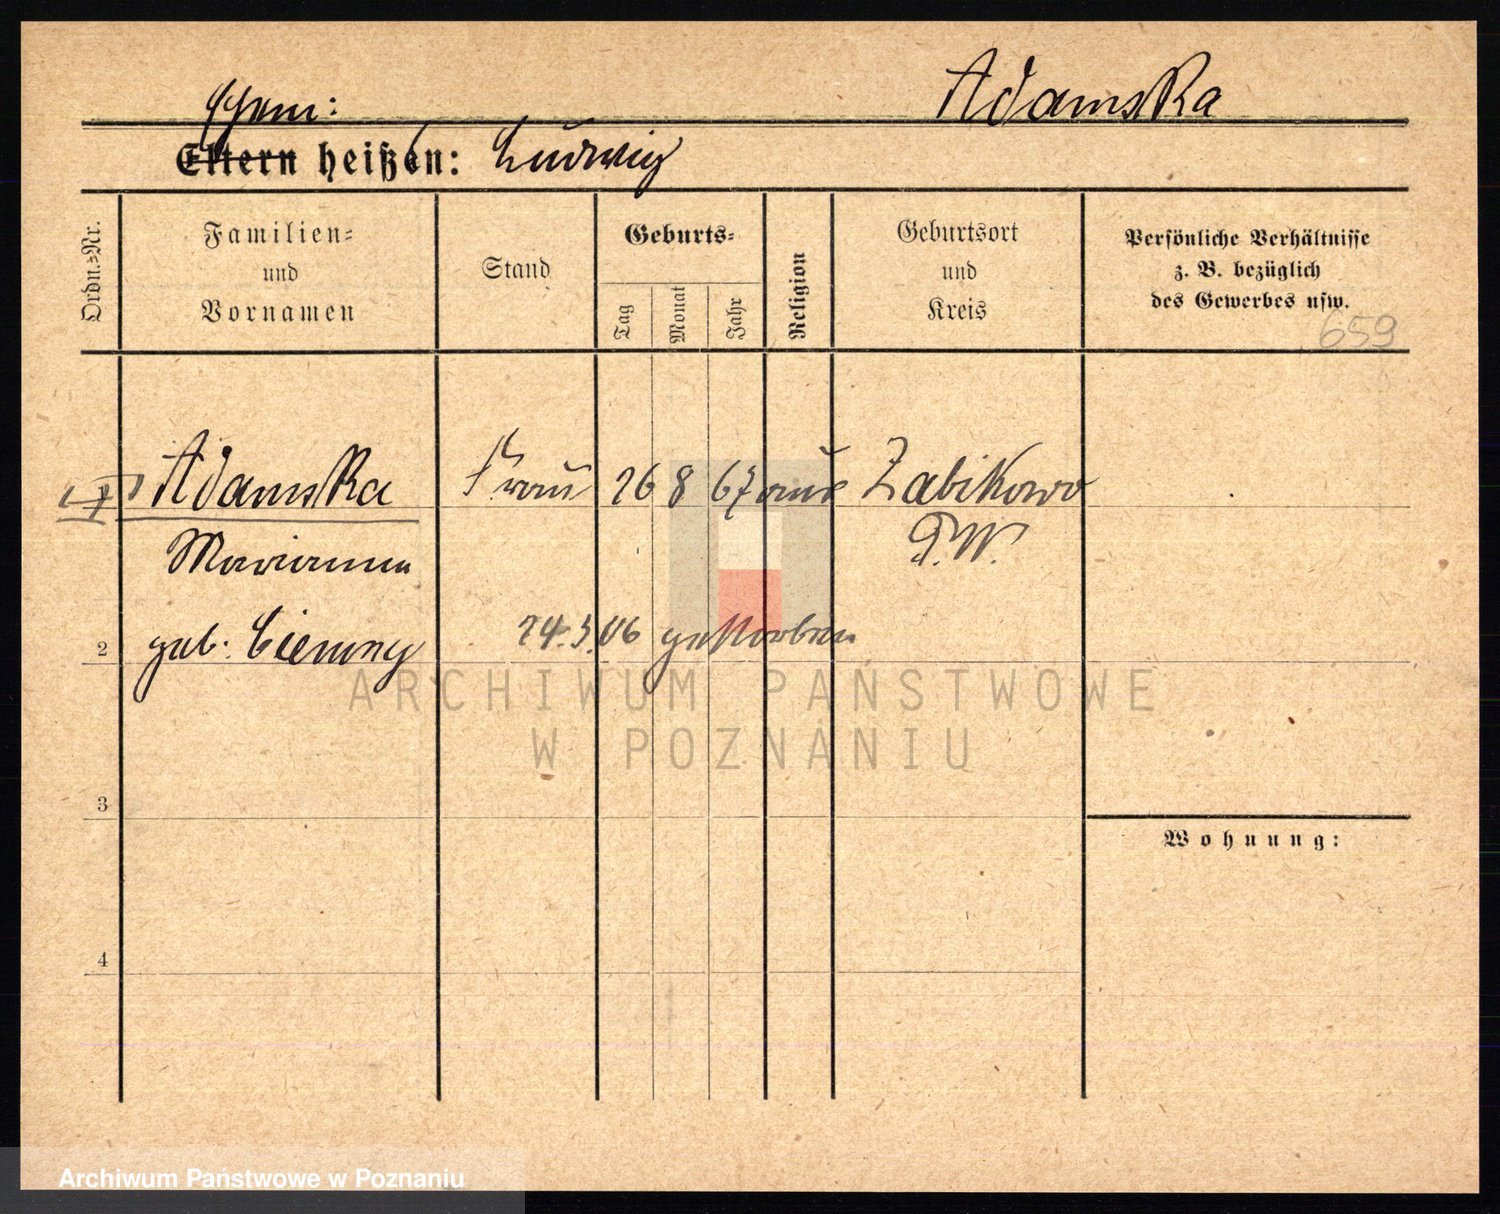 Adamska
Ehem:
Eltern heißen: Ludwig
Ordn.=Nr.
Familien=
und
Vornamen
Stand
Geburts=
Tag
Monat
Jahr
Religion
Geburtsort
und
Kreis
Persönliche Verhältnisse
z. B. bezüglich
des Gewerbes usw.
659
Adamska Frau 26 8 67 aus Zabikowo
P.W.
Marianna
2 geb. 24.3.06 gestorben
ARCHIWUM PAŃSTWOWE
W POZNANIU
3
Wohnung:
4
Archiwum Państwowe w Poznaniu